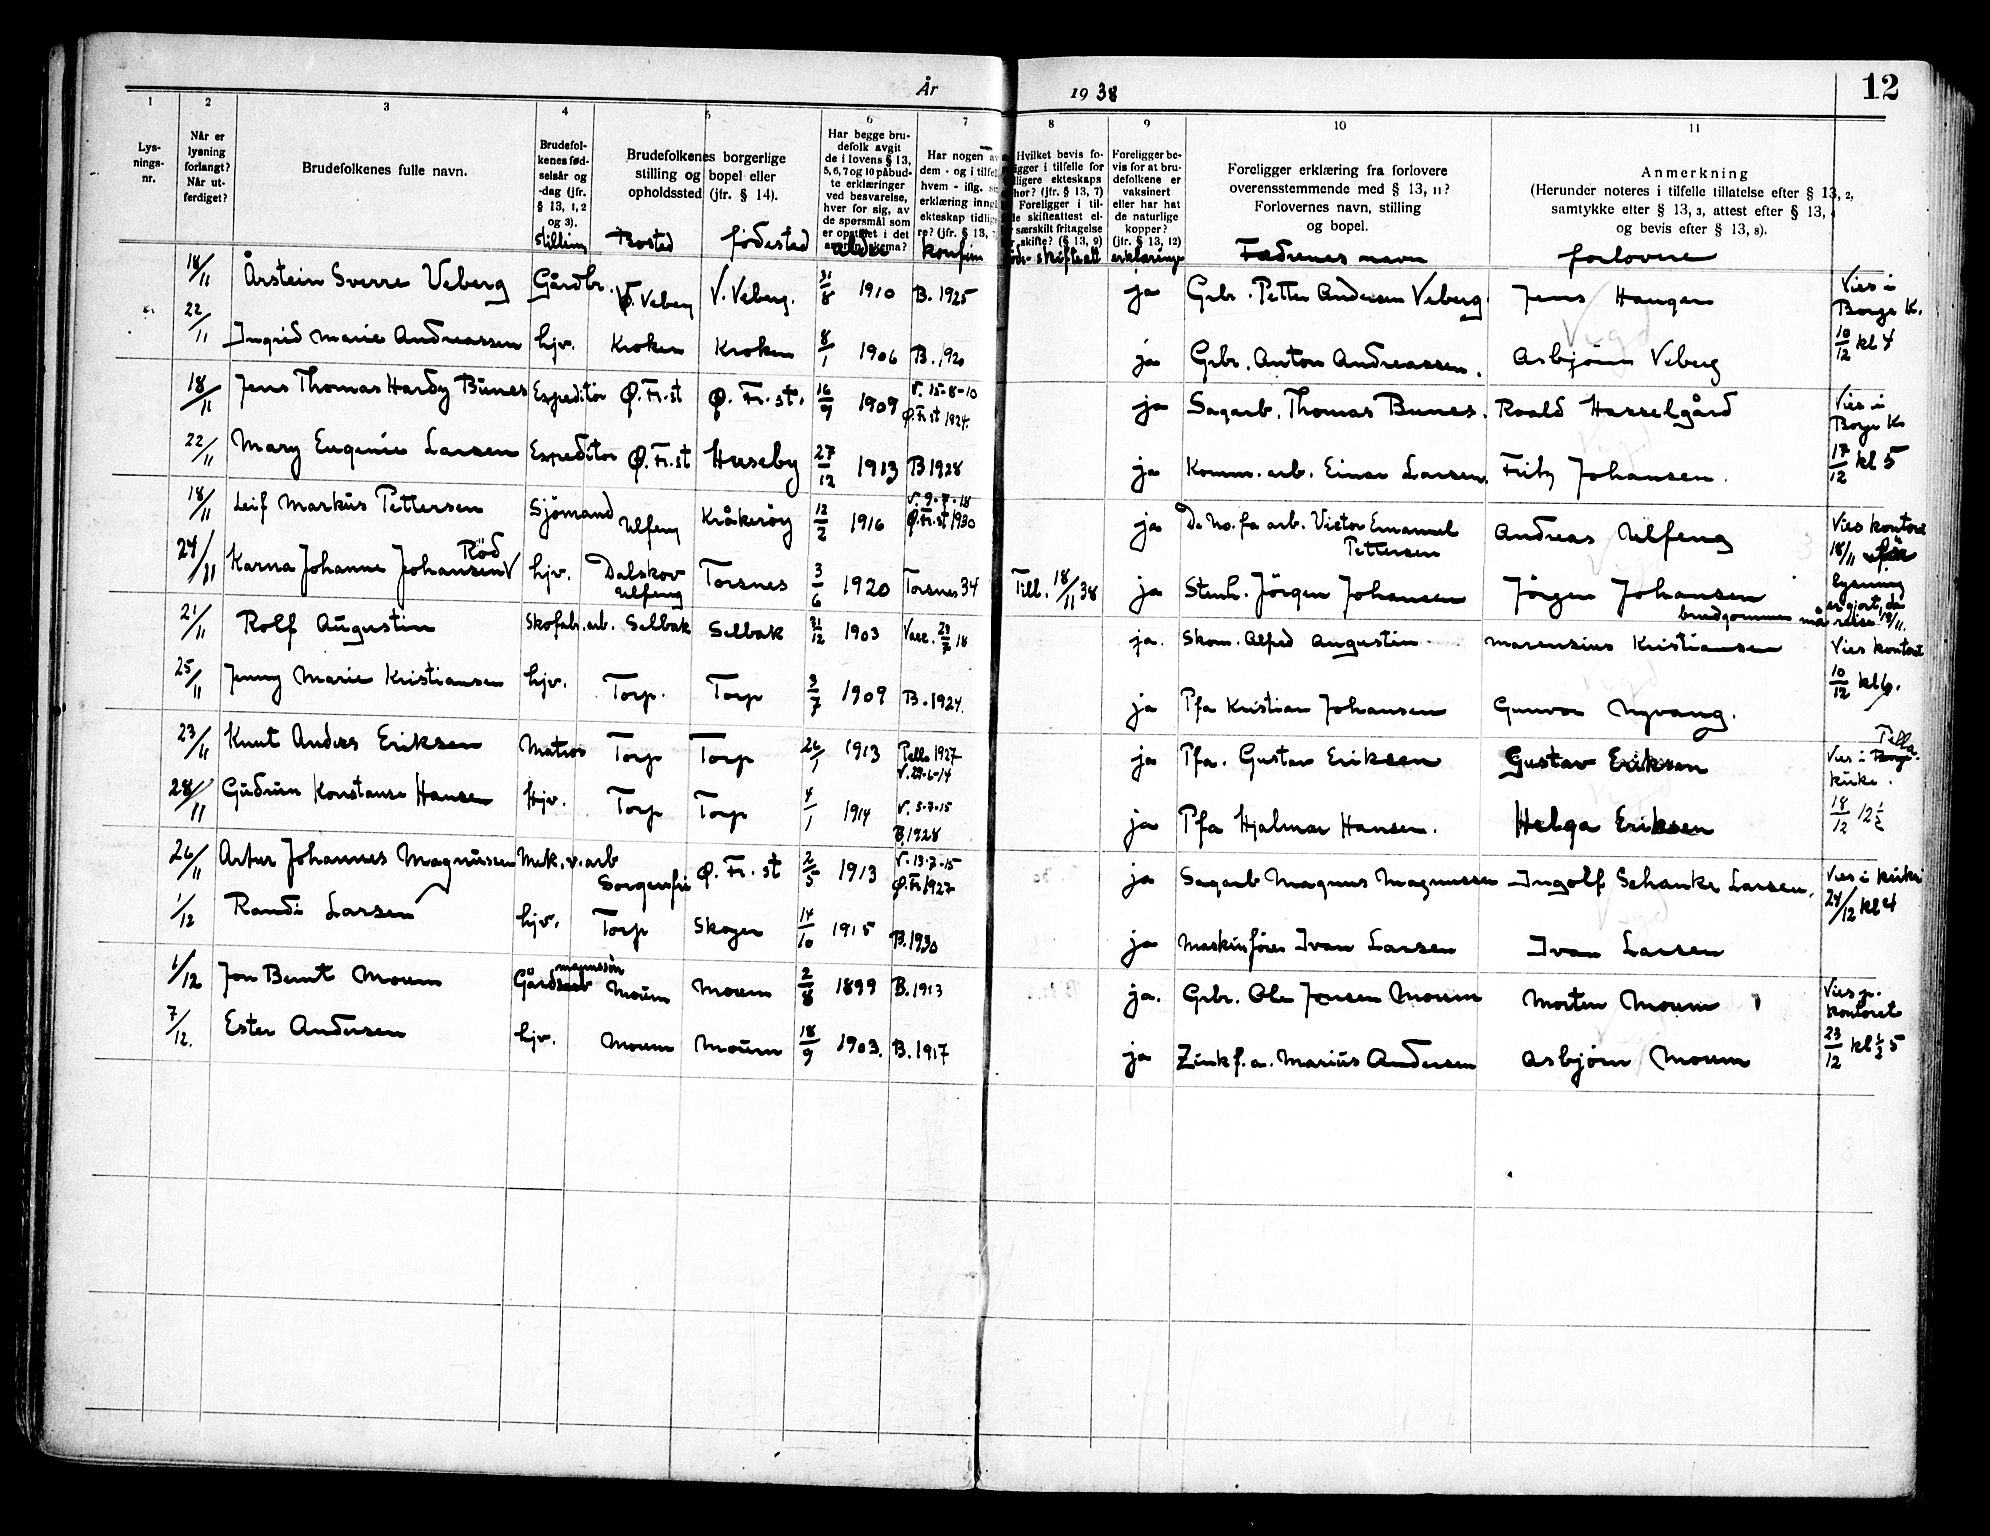 År 1938
12
1 2 3 4 5 6 7 8 9 10 11
Lysningsnr.
Når er lysning forlangt? Når utferdiget?
Brudefolkenes fulle navn.
Brudefolkenes fødselsår og -dag (jfr. § 13, 1, 2 og 3).
stilling
Brudefolkenes borgerlige stilling og bopel eller opholdssted (jfr. § 14).
Bosted fødested
Har begge brudefolk avgit de i lovens § 13, 5, 6, 7 og 10 påbudte erklæringer ved besvarelse, hver for sig, av de spørsmål som er opstillet i det
alder
Har nogen av dem - og i tilfel hvem - iflg. erklæring inng ekteskap tidlig re? (jfr. § 13,
konfirm
Hvilket bevis foreligger i tilfelle for ekteskaps (jfr. § 13, 7) Foreligger i tilfelle skifteattest eller særskilt fritagelse skifte? (§ 13, 9)
skifteatt
Foreligger bevis for at brudefolkene er vaksinert eller har hat de naturlige kopper? (jfr. § 13, 12)
erklæring
Foreligger erklæring fra forlovere overensstemmende med § 13, 11? Forlovernes navn, stilling og bopel.
Fædrenes navn
Anmerkning
(Herunder noteres i tilfelle tillatelse efter § 13, 2, samtykke efter § 13, 3, attest efter § 13, 4 og bevis efter § 13, 8).
forlovere
18/11 Årstein Sverre Veberg Gårdbr. V. Veberg V. Veberg. 31/8 1910 B. 1925 ja Grbr. Petter Andersen Veberg. Jens Haugen Vies i Borge K.
22/11 Ingrid Marie Andreassen hjv. Kroken Kroken 8/1 1906 B. 1920 ja Grbr. Anton Andreassen. Asbjörn Veberg 10/12 kl 4
18/11 Jens Thomas Hardy Bunes Expeditör Ø. Fr. st Ø. Fr. st. 16/9 1909 v. 15-8-10 Ø. Fr st 1924. ja Sagarb. Thomas Bunes. Roald Hasselgård Vies i Borge K
22/11 Mary Eugenie Larsen Expeditör Ø. Fr. st Huseby 27/12 1913 B 1928 ja Komm. arb. Einar Larsen. Fritz Johansen. 17/12 kl 5
18/11 Leif Markus Pettersen Sjömand Ulfeng Kråkeröy 12/2 1916 v. 9.7.18 Ø. Fr. st 1930 ja De No. fa arb. Victor Emanuel Pettersen Andreas Ulfeng Vies kontoret 18/11 för
24/11 Karna Johanne Johansen Röd hjv. Dalskov Ulfeng Torsnes 3/6 1920 Torsnes 34 Till. 18/11 38 ja Stenh. Jörgen Johansen Jörgen Johansen lysning er gjort, da brudgommen må reise 19/11.
21/11 Rolf Augustin Skofabr. arb. Selbak Selbak 31/12 1903 Vacc. 18 ja. Skom. Alfred Augustin Marensius Kristiansen Vies kontoret
25/11 Jenny Marie Kristiansen hjv. Torp. Torp 3/7 1909 B. 1924. ja Pfa Kristian Johansen Gunvor Nyvang. 10/12 kl 6.
23/11 Knut Anders Eriksen Matros Torp Torp 26/1 1913 Pella 1927 v. 29-6-14 ja Pfa. Gustav Eriksen Gustav Eriksen Vies i Borge Pella kirke.
28/11 Gudrun Konstanse Hansen Hjv. Torp Torp 4/1 1914 v. 5.7.15 B. 1928 ja Pfa Hjalmar Hansen. Helga Eriksen 18/12 12 1/2
26/11 Artur Johannes Magnussen Mek. v. arb Sorgenfri Ø. Fr. st 2/5 1913 v. 13.7.15 Ø. Fr 1927 ja Sagarb Magnus Magnussen Ingolf Schanke Larsen. Vies i kirke
1/12 Randi Larsen hjv. Torp Skoger 14/10 1915 B. 1930 ja Maskinförer Ivar Larsen Ivar Larsen 24/12 kl 4
1/12 Jon Bernt Moum Gårdsarb Moum Moum 2/8 1899 B. 1913 ja. Grbr. Ole Jensen Moum Morten Moum Vies p. kontoret
7/12. Ester Andersen hjv. Moum Moum 18/9 1903. B. 1917 ja Zinkf. a. Marius Andersen Asbjörn Moum 23/12 kl 1/2 5